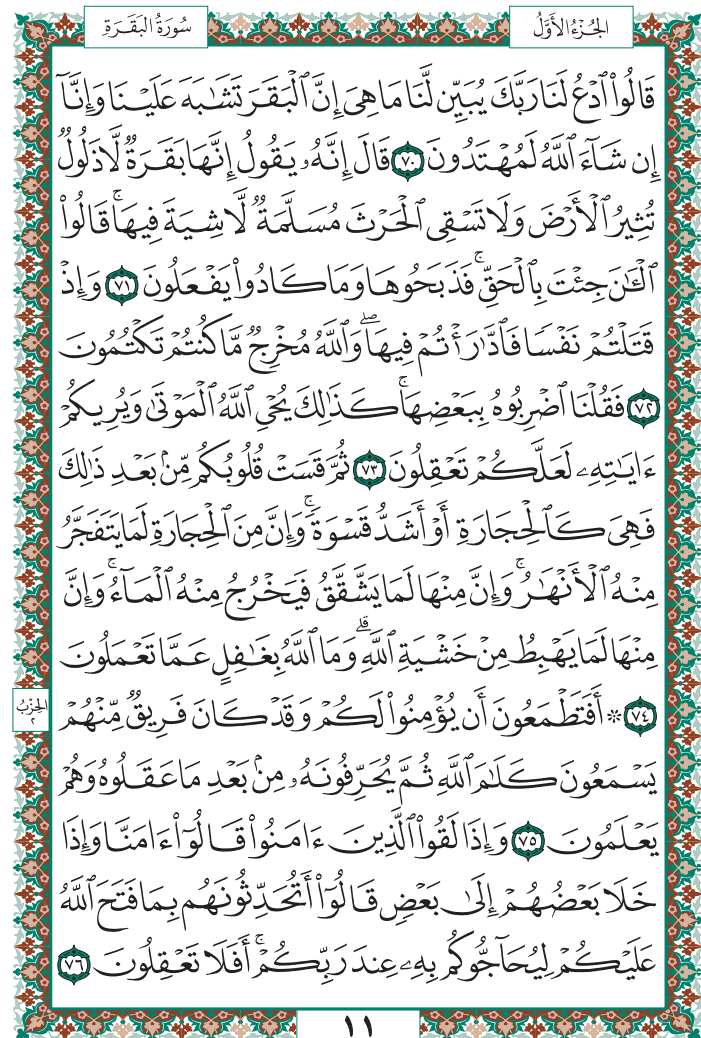 الجُزْءُ الأَوَّلُ
سُورَةُ البَقَرَةِ
قَالُوا۟ ٱدْعُ لَنَا رَبَّكَ يُبَيِّن لَّنَا مَا هِىَ إِنَّ ٱلْبَقَرَ تَشَـٰبَهَ عَلَيْنَا وَإِنَّآ
إِن شَآءَ ٱللَّهُ لَمُهْتَدُونَ ٧٠ قَالَ إِنَّهُۥ يَقُولُ إِنَّهَا بَقَرَةٌ لَّا ذَلُولٌ
تُثِيرُ ٱلْأَرْضَ وَلَا تَسْقِى ٱلْحَرْثَ مُسَلَّمَةٌ لَّا شِيَةَ فِيهَا ۚ قَالُوا۟
ٱلْـَٔـٰنَ جِئْتَ بِٱلْحَقِّ ۚ فَذَبَحُوهَا وَمَا كَادُوا۟ يَفْعَلُونَ ٧١ وَإِذْ
قَتَلْتُمْ نَفْسًا فَٱدَّٰرَْٰٔتُمْ فِيهَا ۖ وَٱللَّهُ مُخْرِجٌ مَّا كُنتُمْ تَكْتُمُونَ
٧٢ فَقُلْنَا ٱضْرِبُوهُ بِبَعْضِهَا ۚ كَذَٰلِكَ يُحْىِ ٱللَّهُ ٱلْمَوْتَىٰ وَيُرِيكُمْ
ءَايَـٰتِهِۦ لَعَلَّكُمْ تَعْقِلُونَ ٧٣ ثُمَّ قَسَتْ قُلُوبُكُم مِّنۢ بَعْدِ ذَٰلِكَ
فَهِىَ كَٱلْحِجَارَةِ أَوْ أَشَدُّ قَسْوَةً ۚ وَإِنَّ مِنَ ٱلْحِجَارَةِ لَمَا يَتَفَجَّرُ
مِنْهُ ٱلْأَنْهَـٰرُ ۚ وَإِنَّ مِنْهَا لَمَا يَشَّقَّقُ فَيَخْرُجُ مِنْهُ ٱلْمَآءُ ۚ وَإِنَّ
مِنْهَا لَمَا يَهْبِطُ مِنْ خَشْيَةِ ٱللَّهِ ۗ وَمَا ٱللَّهُ بِغَـٰفِلٍ عَمَّا تَعْمَلُونَ
الحِزْبُ
٢
٧٤ ۞ أَفَتَطْمَعُونَ أَن يُؤْمِنُوا۟ لَكُمْ وَقَدْ كَانَ فَرِيقٌ مِّنْهُمْ
يَسْمَعُونَ كَلَـٰمَ ٱللَّهِ ثُمَّ يُحَرِّفُونَهُۥ مِنۢ بَعْدِ مَا عَقَلُوهُ وَهُمْ
يَعْلَمُونَ ٧٥ وَإِذَا لَقُوا۟ ٱلَّذِينَ ءَامَنُوا۟ قَالُوٓا۟ ءَامَنَّا وَإِذَا
خَلَا بَعْضُهُمْ إِلَىٰ بَعْضٍ قَالُوٓا۟ أَتُحَدِّثُونَهُم بِمَا فَتَحَ ٱللَّهُ
عَلَيْكُمْ لِيُحَآجُّوكُم بِهِۦ عِندَ رَبِّكُمْ ۚ أَفَلَا تَعْقِلُونَ ٧٦
١١